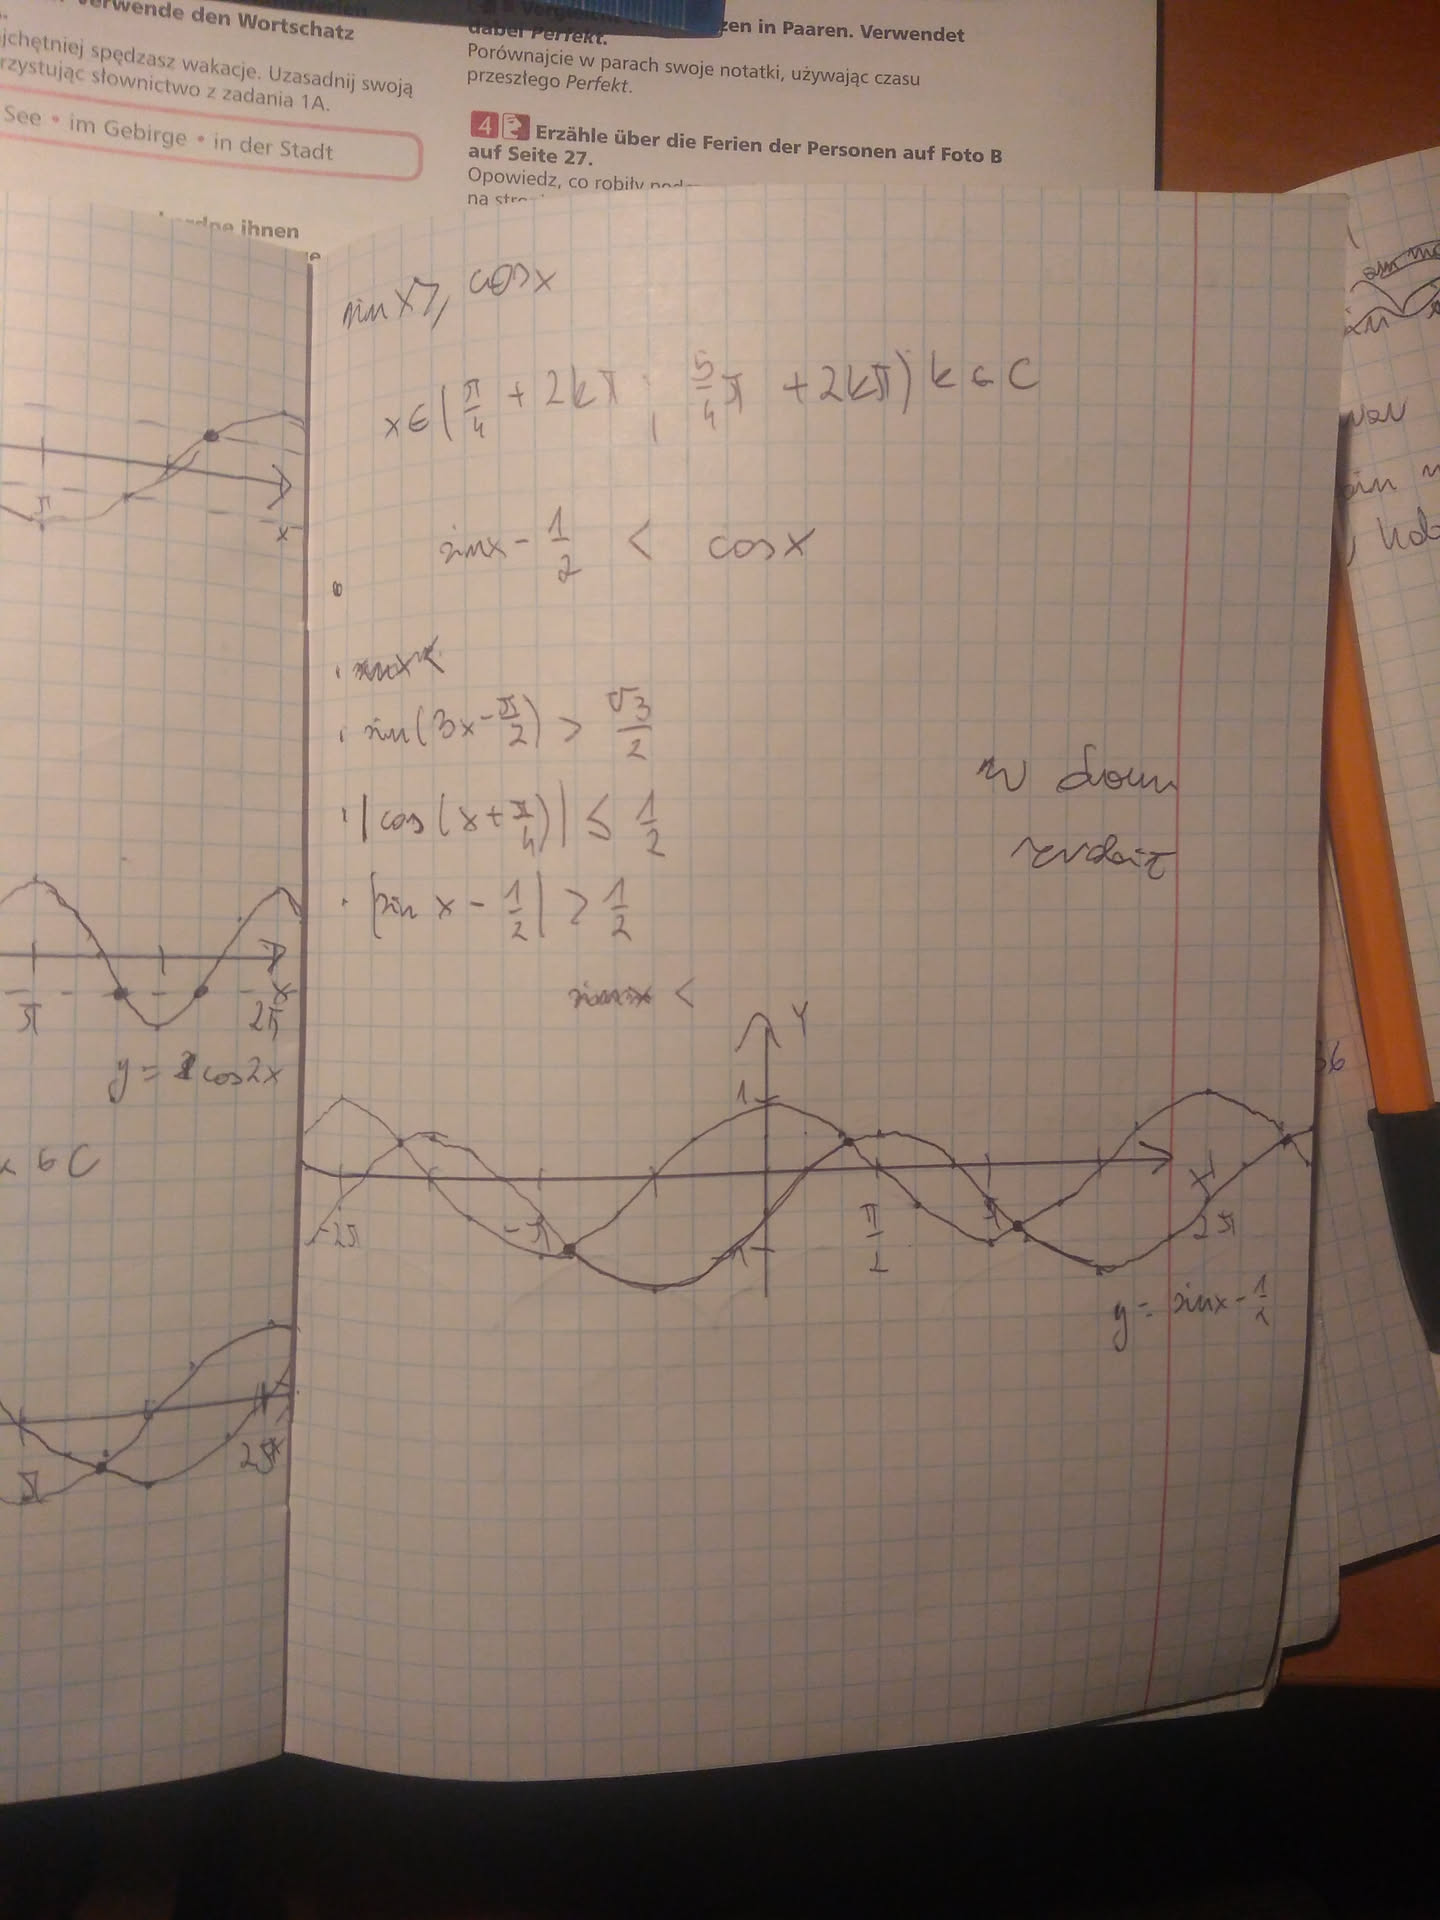 verwende den Wortschatz
jchętniej spędzasz wakacje. Uzasadnij swoją
rzystując słownictwo z zadania 1A.
See • im Gebirge • in der Stadt
ihnen
zen in Paaren. Verwendet
dabei Perfekt.
Porównajcie w parach swoje notatki, używając czasu
przeszłego Perfekt.
4 Erzähle über die Ferien der Personen auf Foto B
auf Seite 27.
Opowiedz, co robiły
na
sin x ≥ cos x
x ∈ ( π/4 + 2kπ ; 5/4 π + 2kπ ) k ∈ C
sin x - 1/2 < cos x
sin x <
sin(3x - π/2) > √3/2
|cos(x + π/4)| ≤ 1/2
|sin x - 1/2| > 1/2
w domu
sin x <
Y
1
-2π
-π
-1
π/2
π
2π
X
y = sin x - 1/2
π
x
π
2π
x
y = cos 2x
∈ C
π
2π